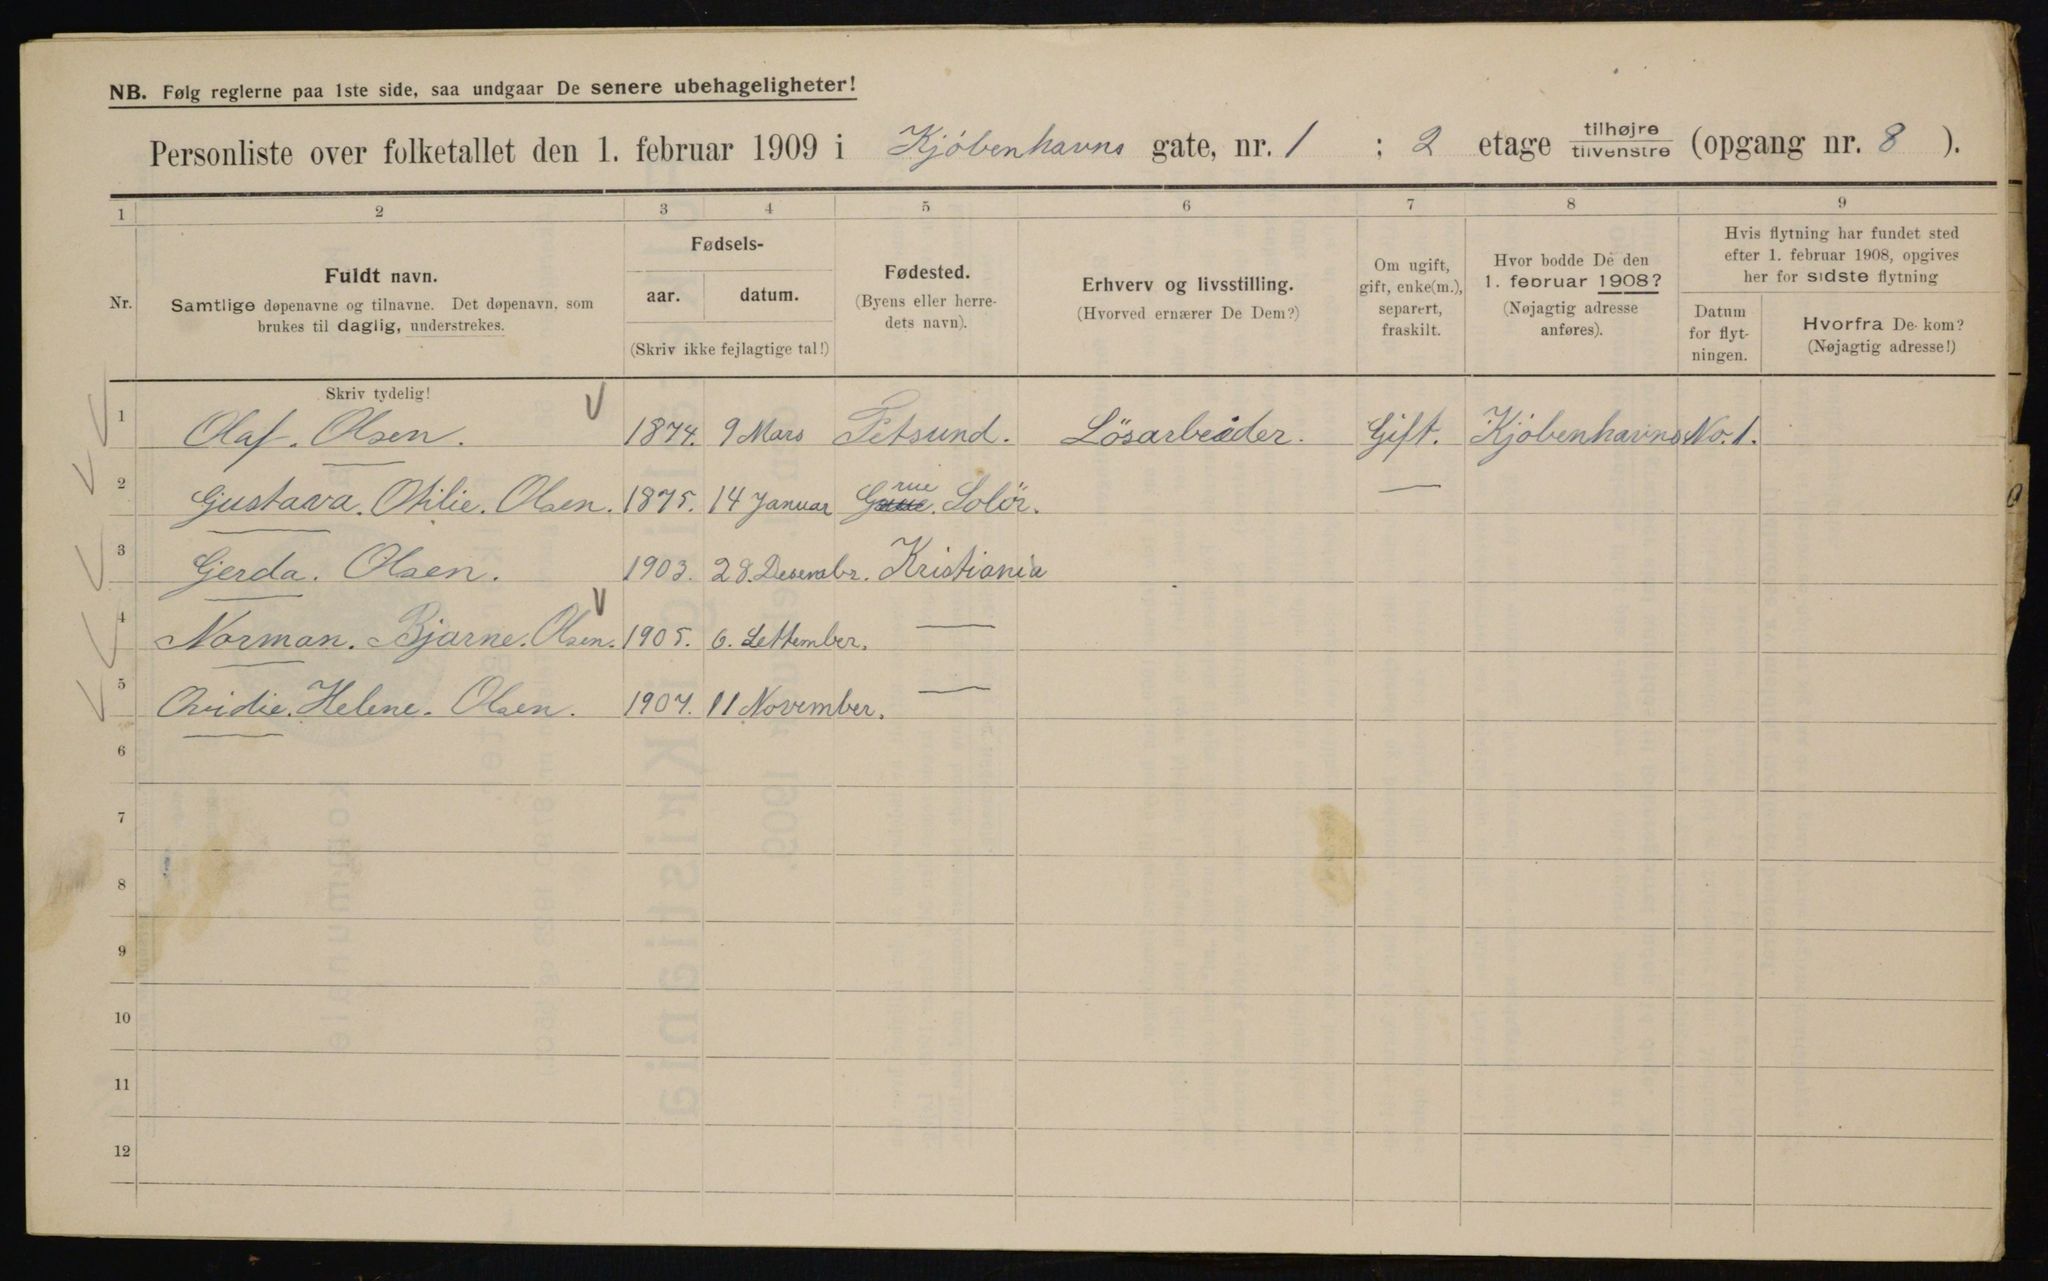 NB. Følg reglerne paa 1ste side, saa undgaar De senere ubehageligheter!
Personliste over folketallet den 1. februar 1909 i Kjøbenhavns gate, nr. 1 ; 2 etage tilhøjre tilvenstre (opgang nr. 8 ).
1 2 3 4 5 6 7 8 9
Nr.
Fuldt navn.
Samtlige døpenavne og tilnavne. Det døpenavn, som
brukes til daglig, understrekes.
Fødsels-
aar. datum.
(Skriv ikke fejlagtige tal!)
Fødested.
(Byens eller herre-
dets navn).
Erhverv og livsstilling.
(Hvorved ernærer De Dem?)
Om ugift,
gift, enke(m.),
separert,
fraskilt.
Hvor bodde De den
1. februar 1908?
(Nøjagtig adresse
anføres).
Hvis flytning har fundet sted
efter 1. februar 1908, opgives
her for sidste flytning
Datum
for flyt-
ningen.
Hvorfra De kom?
(Nøjagtig adresse!)
Skriv tydelig!
1 Olaf. Olsen. 1874. 9 Mars Fetsund. Lösarbeider. Gift. Kjöbenhavns No. 1.
2 Gustava. Otilie. Olsen. 1875. 14 Januar Grue. Solör. —
3 Gerda. Olsen. 1903. 28. Desembr. Kristiania
4 Norman. Bjarne. Olsen. 1905. 6. Settember. —
5 Ovidie. Helene. Olsen. 1907. 11 November. —
6
7
8
9
10
11
12